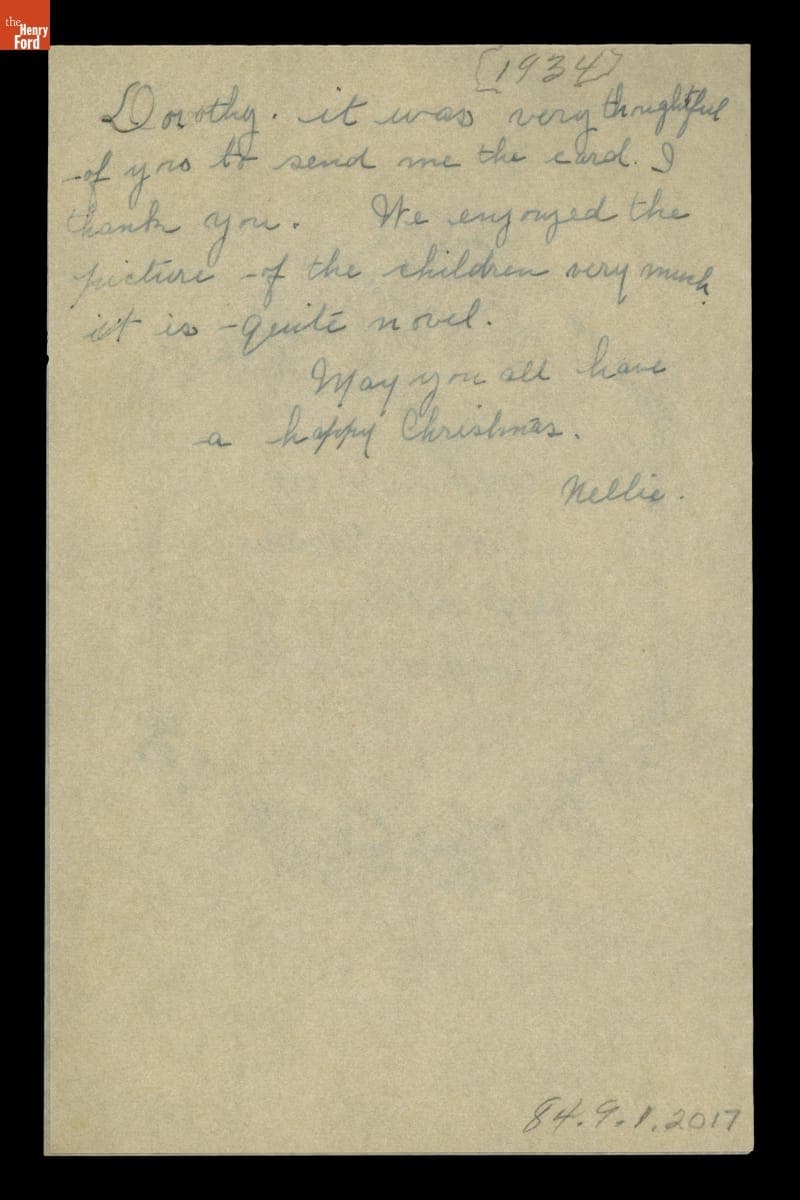 the
Henry
Ford
[1934]
Dorothy. it was very thoughtful
of you to send me the card. I
thank you. We enjoyed the
picture of the children very much
it is quite novel.
May you all have
a happy Christmas.
Nellie.
84.9.1.2017